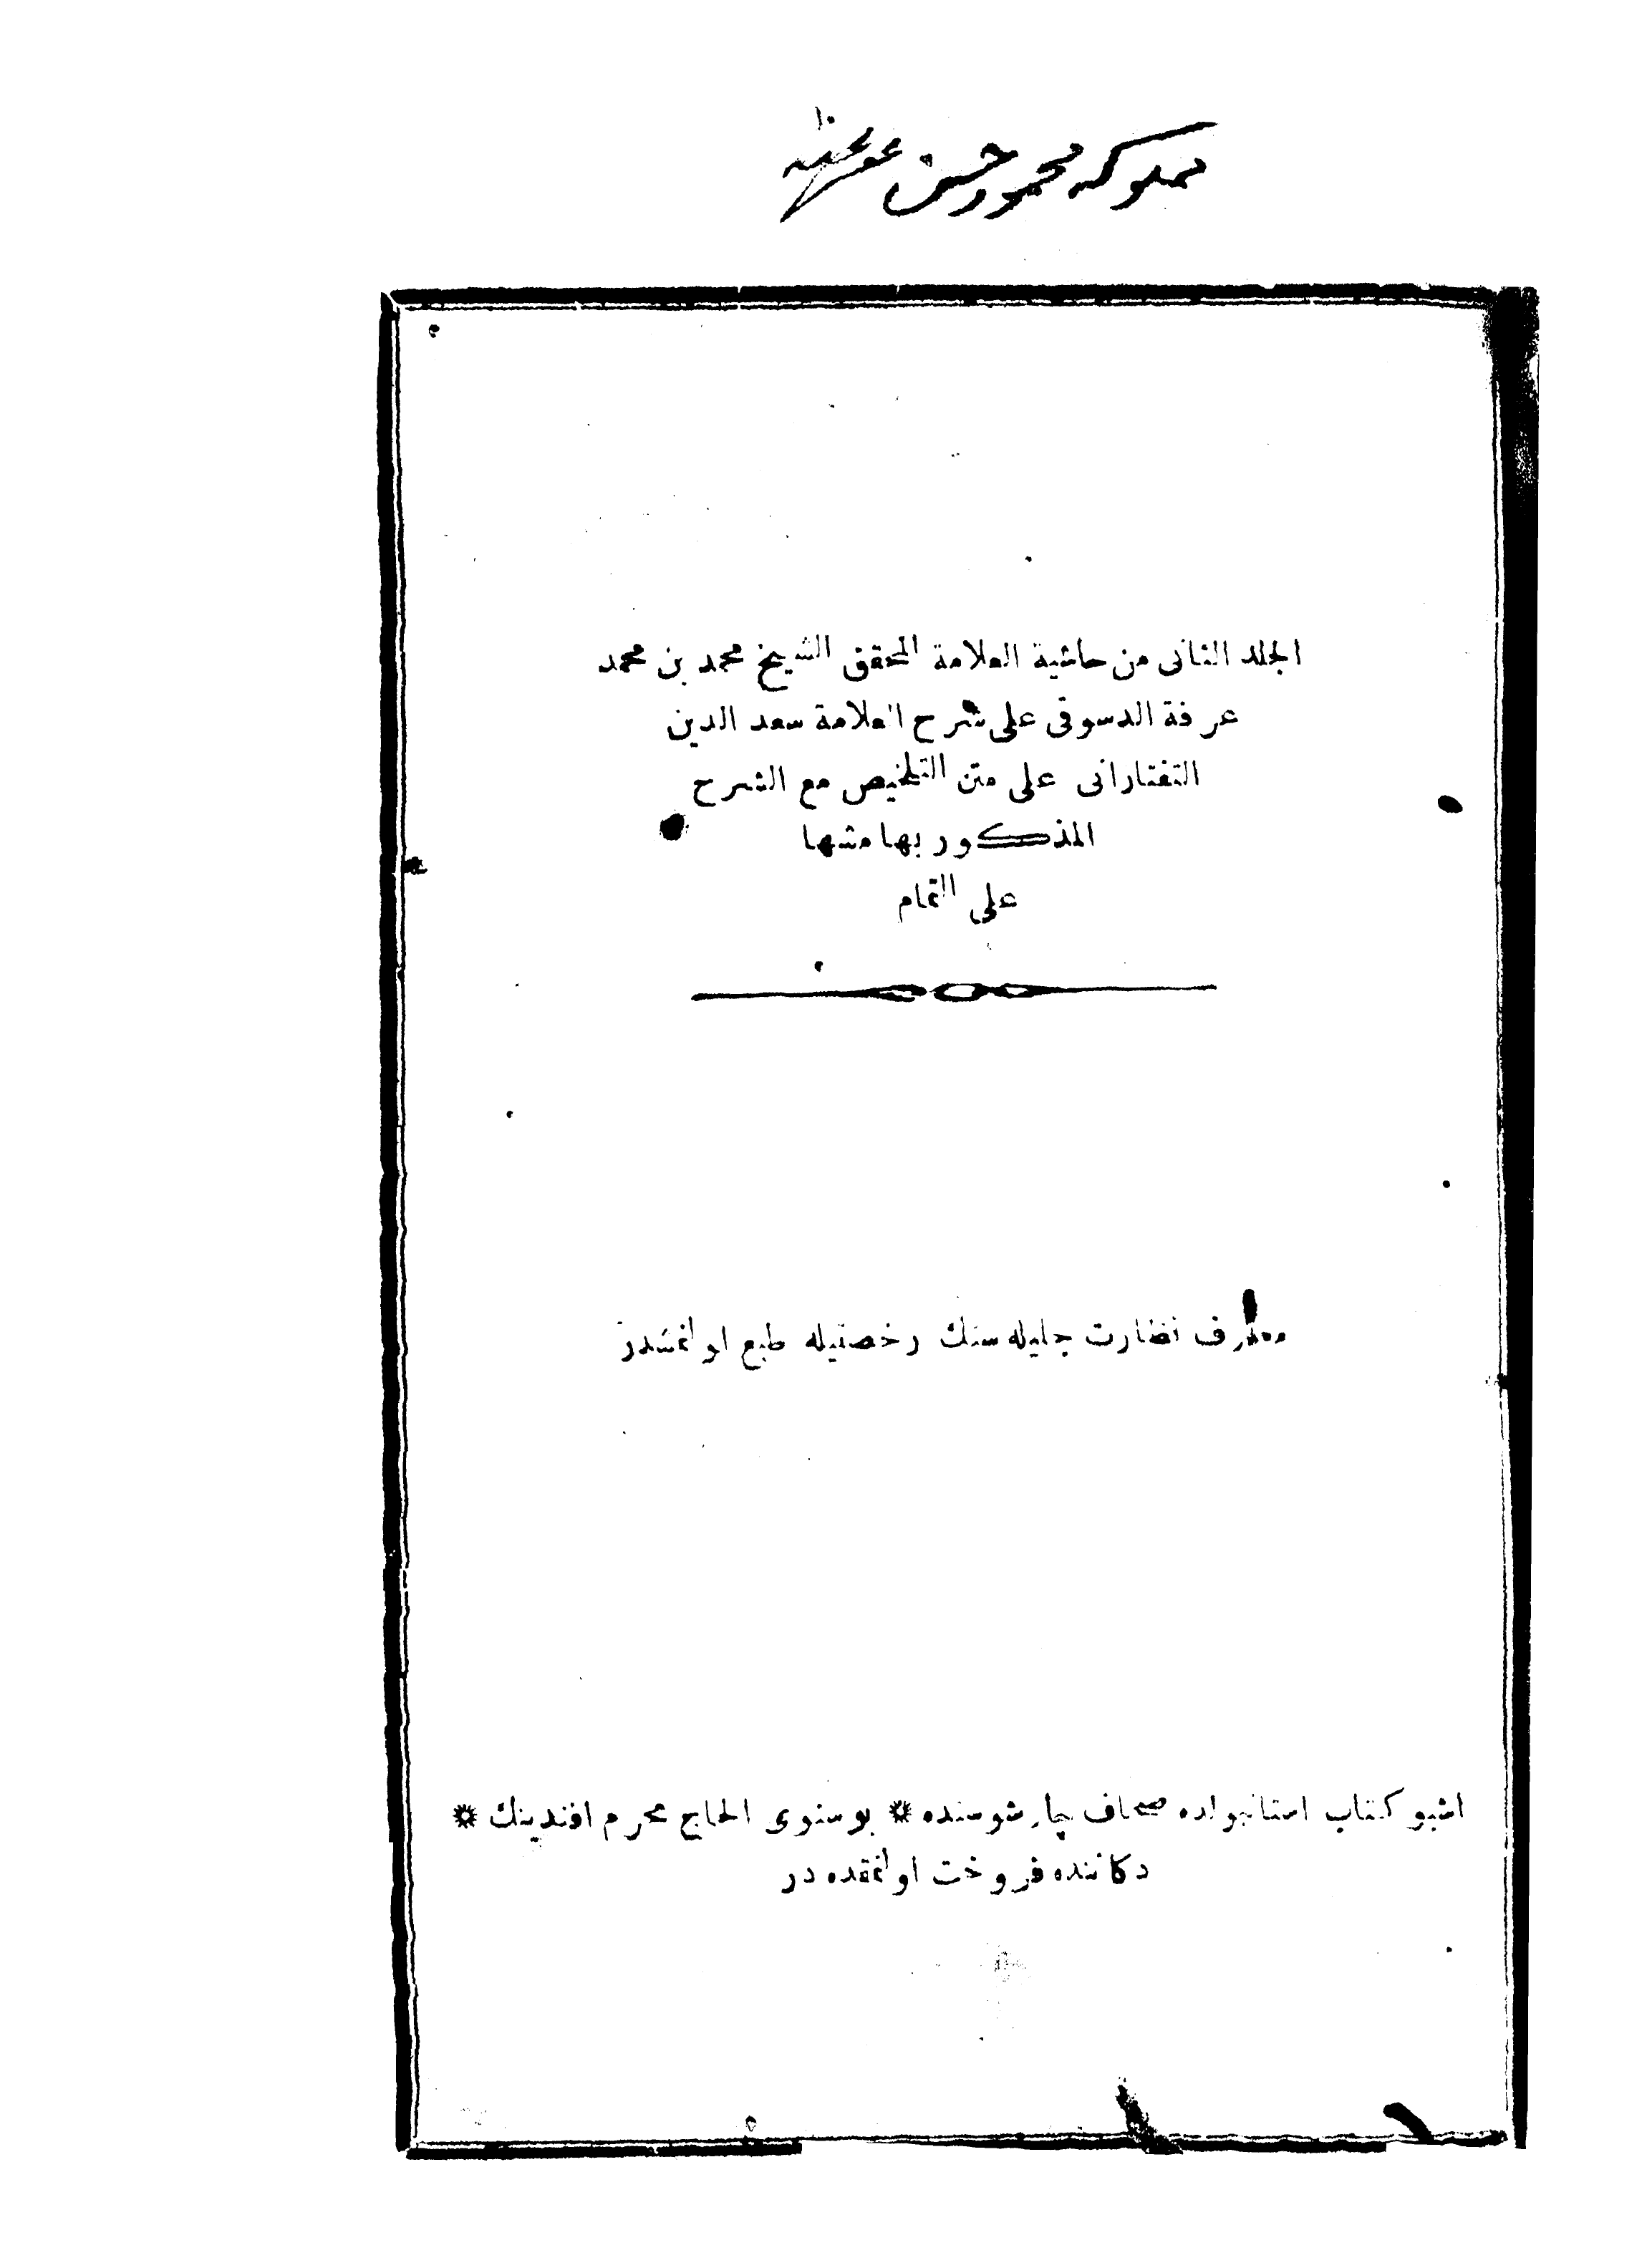 مملوكه محمود حسن عفى عنه
الجلد الثانى من حاشية العلامة المحقق الشيخ محمد بن محمد
عرفة الدسوقى على شرح العلامة سعد الدين
التفتازانى على متن التلخيص مع الشرح
المذكور بهامشها
على التمام
معارف نظارت جليله سنك رخصتيله طبع اولنمشدر
اشبو كتاب استانبولده صحاف چارشوسنده * بوسنوى الحاج محرم افندينك *
دكاننده فروخت اولنمقده در